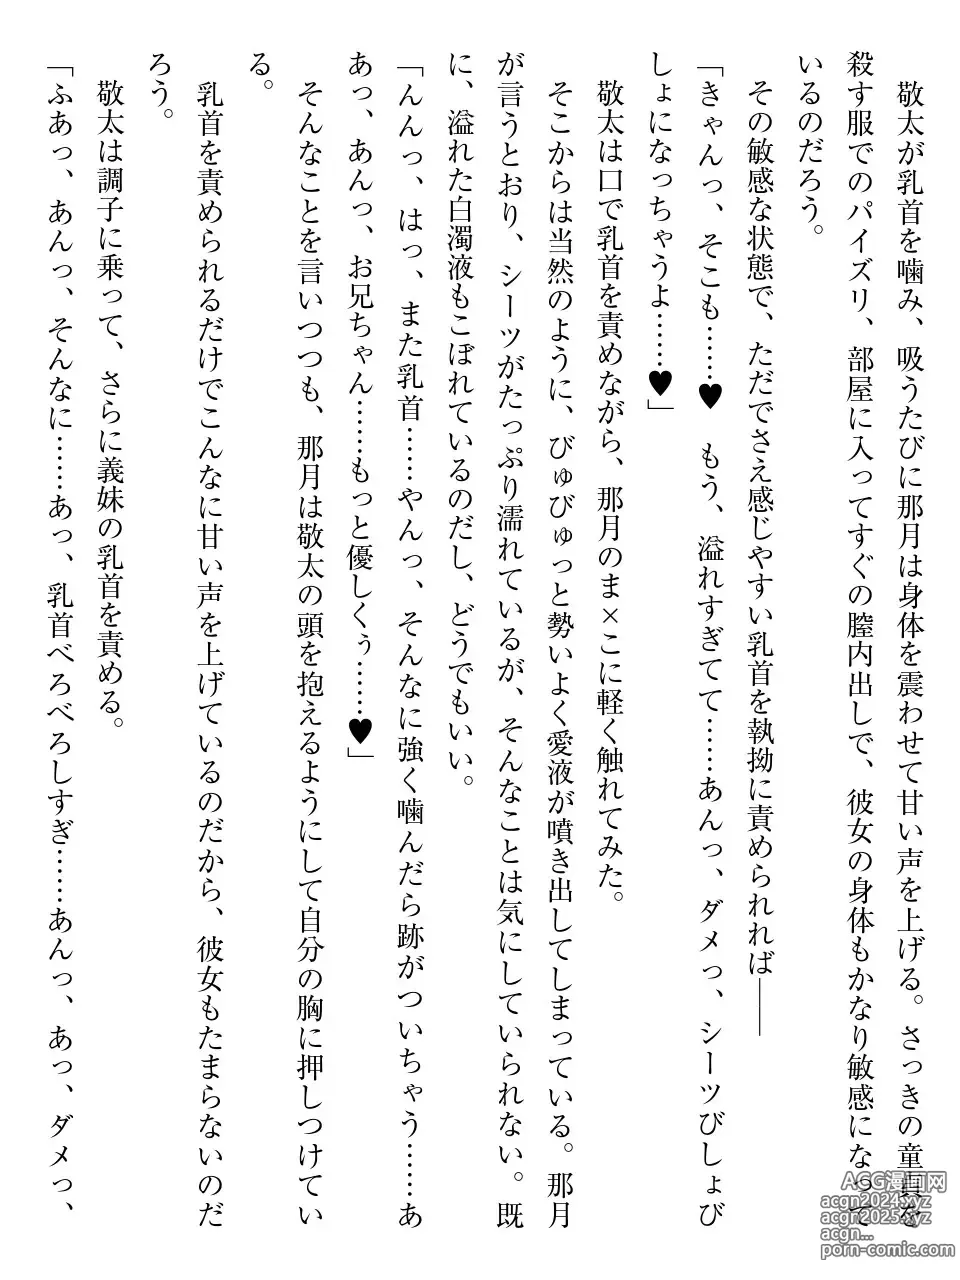 敬太が乳首を噛み、吸うたびに那月は身体を震わせて甘い声を上げる。さっきの童貞を
殺す服でのパイズリ、部屋に入ってすぐの膣内出しで、彼女の身体もかなり敏感になって
いるのだろう。
その敏感な状態で、ただでさえ感じやすい乳首を執拗に責められれば――
「きゃんっ、そこも……♥　もう、溢れすぎてて……あんっ、ダメっ、シーツびしょび
しょになっちゃうよ……♥」
敬太は口で乳首を責めながら、那月のま×こに軽く触れてみた。
そこからは当然のように、びゅびゅっと勢いよく愛液が噴き出してしまっている。那月
が言うとおり、シーツがたっぷり濡れているが、そんなことは気にしていられない。既
に、溢れた白濁液もこぼれているのだし、どうでもいい。
「んんっ、はっ、また乳首……やんっ、そんなに強く噛んだら跡がついちゃう……あ
あっ、あんっ、お兄ちゃん……もっと優しくぅ……♥」
そんなことを言いつつも、那月は敬太の頭を抱えるようにして自分の胸に押しつけてい
る。
乳首を責められるだけでこんなに甘い声を上げているのだから、彼女もたまらないのだ
ろう。
敬太は調子に乗って、さらに義妹の乳首を責める。
「ふあっ、あんっ、そんなに……あっ、乳首べろべろしすぎ……あんっ、あっ、ダメっ、
AGG漫画网
acgn2024.xyz
acgr2025.xyz
acgn...
porn-comic.com